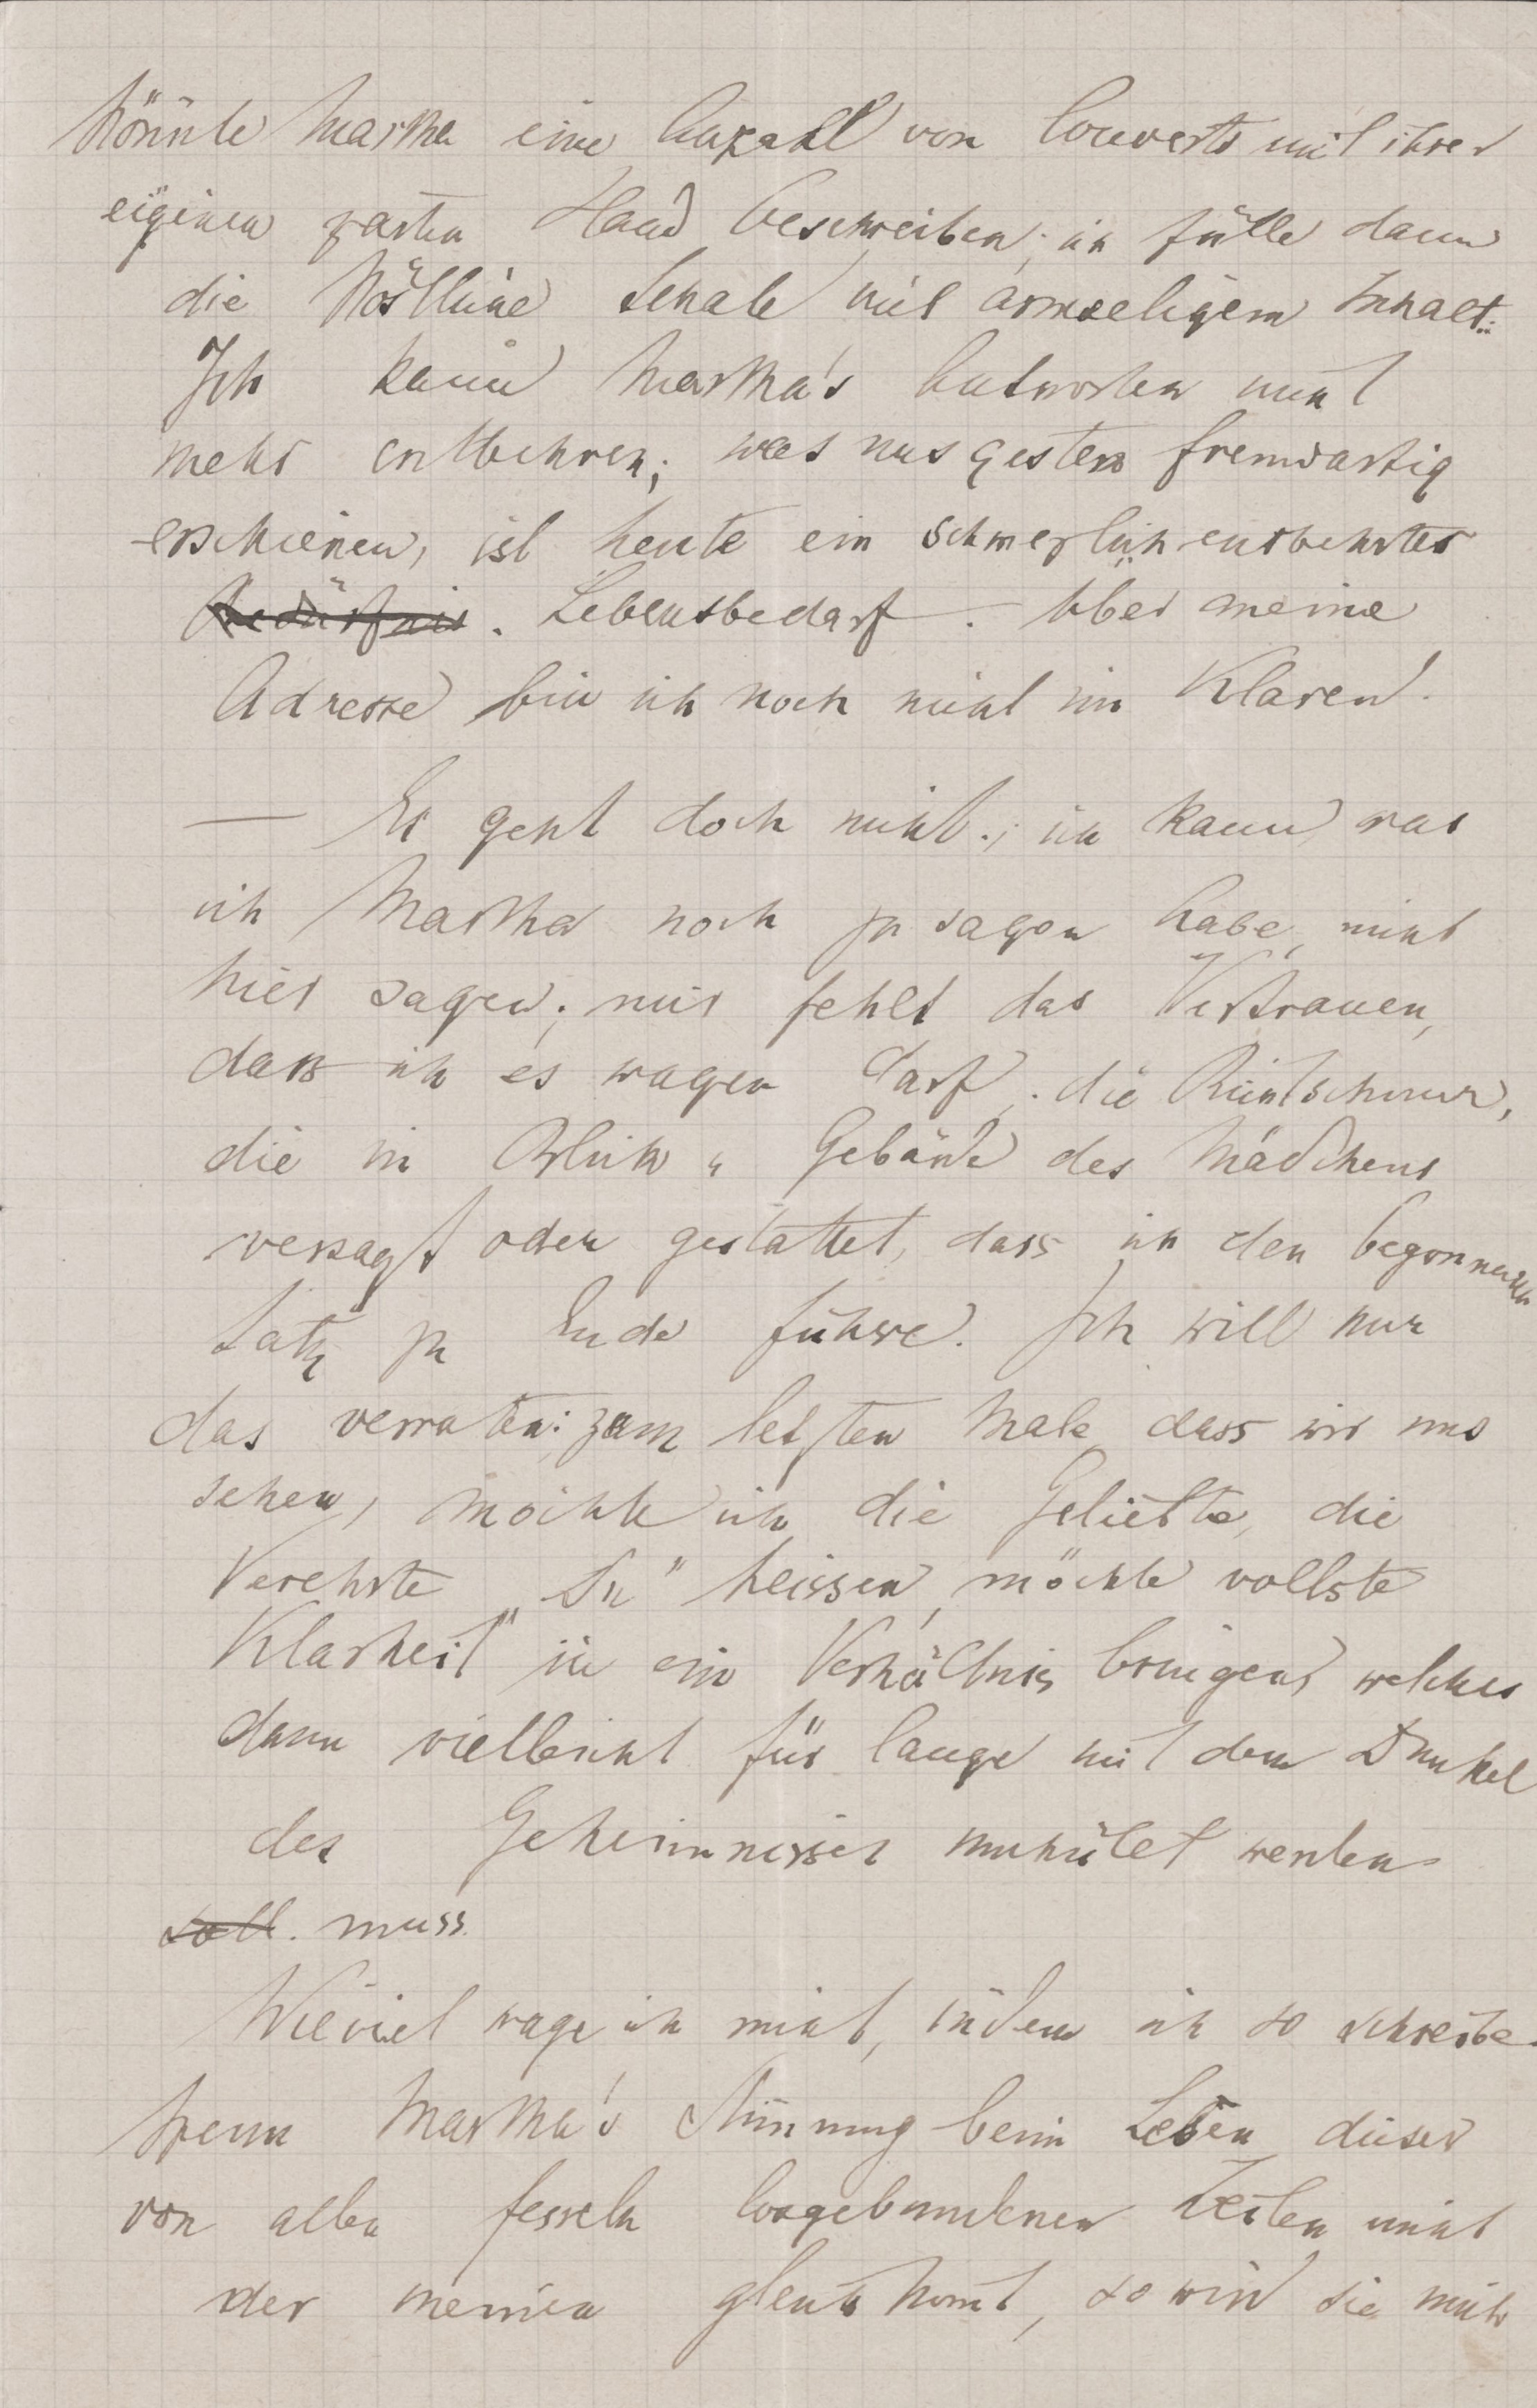 könnte Martha eine Anzahl von Couverts mit ihrer
eigenen zarten Hand beschreiben; ich fülle dann
die köstliche Schale mit armseligem Inhalt.
Ich kann Martha's Antworten nicht
mehr entbehren; was uns gestern fremdartig
erschienen, ist heute ein schmerzlich entbehrter
Bedürfnis. Lebensbedarf. Über meine
Adresse bin ich noch nicht im Klaren.
— Es geht doch nicht.; ich kann, was
ich Martha noch zu sagen habe, nicht
hier sagen; mir fehlt das Vertrauen,
dass ich es wagen darf; die Richtschnur,
die in Blick u Gebärde des Mädchens
versagt oder gestattet, dass ich den begonnenen
Satz zu Ende führe. Ich will nur
das verraten: zum letzten Male, dass wir uns
sehen, möchte ich die Geliebte, die
Verehrte „Du" heissen, möchte vollste
Klarheit in ein Verhältnis bringen, welches
dann vielleicht für lange mit dem Dunkel
des Geheimnisses umhüllt werden
soll. muss.
Wieviel wage ich nicht, indem ich so schreibe.
Wenn Martha's Stimmung beim Lesen dieser
von allen Fesseln losgebundenen Zeilen nicht
der meinen gleich komt, so wird sie mich